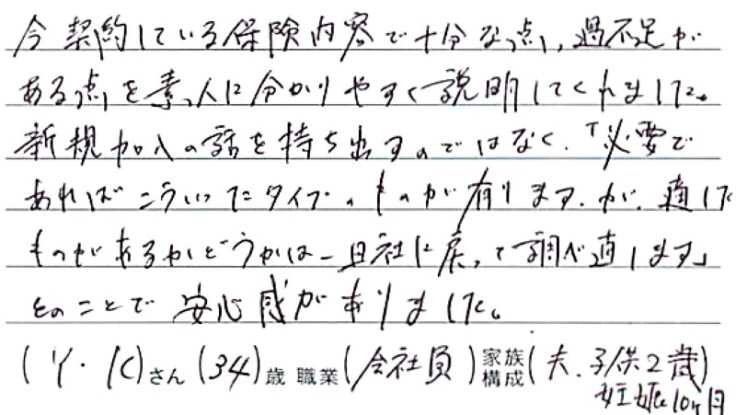 今契約している保険内容で十分な点、過不足が
ある点を素人に分かりやすく説明してくれました。
新規加入の話を持ち出すのではなく、「必要で
あればこういったタイプのものが有ります。が、適した
ものがあるかどうかは一旦社に戻って調べ直します」
とのことで安心感が有りました。
(Y・K)さん(34)歳 職業(会社員)家族構成(夫、子供2歳)
妊娠10ヶ月